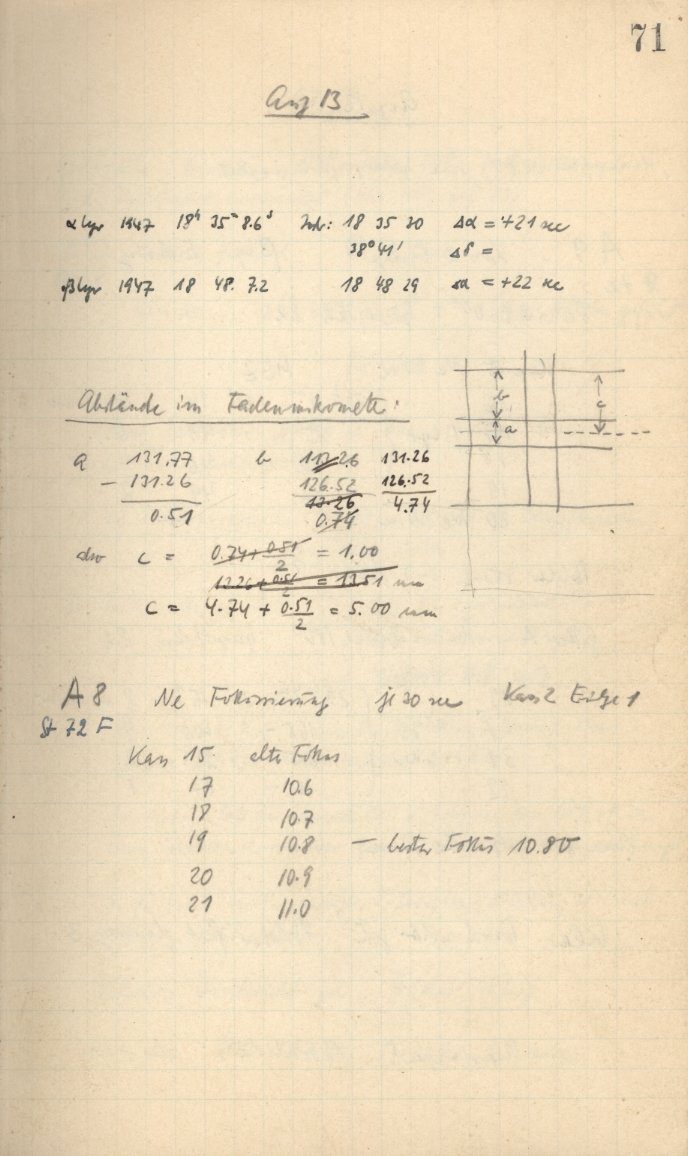 71
Aug 13
α Lyr 1947 18ʰ 35ᵐ 8.6ˢ Instr: 18 35 30 Δα = +21 sec
38° 41' Δδ =
β Lyr 1947 18 48. 7.2 18 48 29 Δα = +22 sec
Abstände im Fadenmikrometer:
a 131.77 b 113.26 131.26
- 131.26 126.52 126.52
0.51 13.26 4.74
0.74
also c = 0.74 + 0.51/2 = 1.00
13.26 + 0.51/2 = 13.51 mm
c = 4.74 + 0.51/2 = 5.00 mm
b
a
c
A 8 Ne Fokussierung je 30 sec Kass 2 Eilge 1
St 72 F
Kass 15. alter Fokus
17 10.6
18 10.7
19 10.8 — bester Fokus 10.80
20 10.9
21 11.0